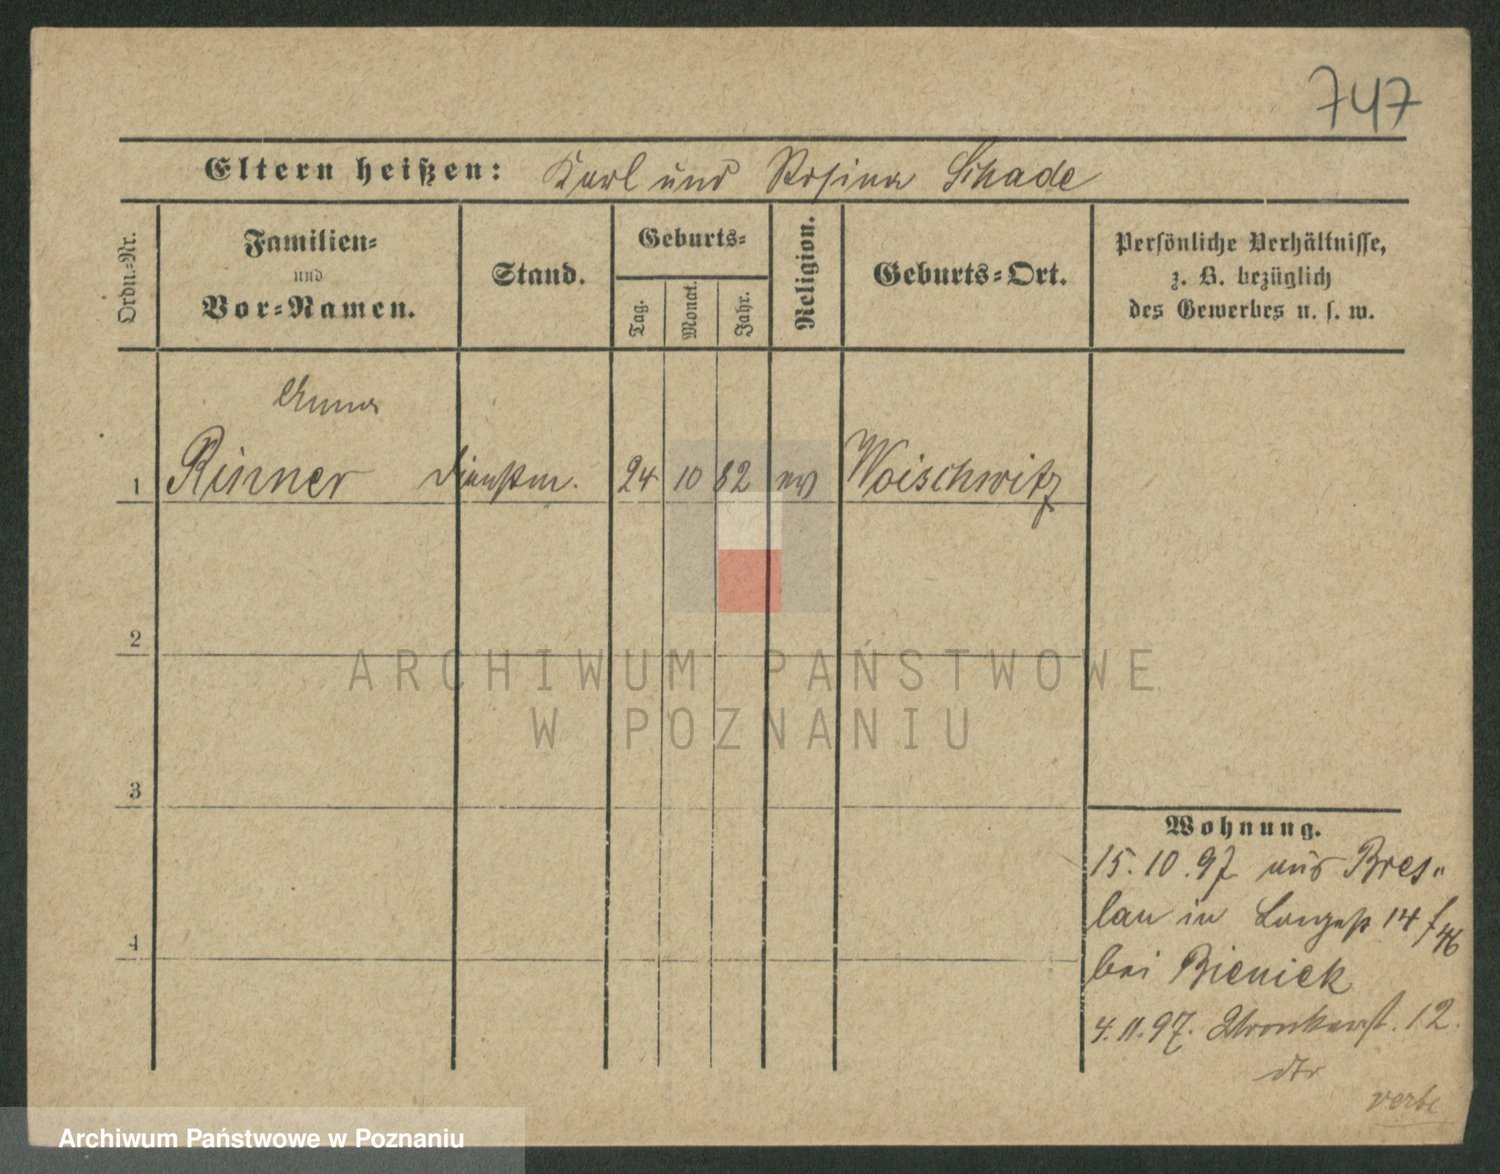 747
Eltern heißen: Karl und Rosina Schade
Ordn.-Nr.
Familien-
und
Vor-Namen.
Stand.
Geburts-
Tag.
Monat.
Jahr.
Religion.
Geburts-Ort.
Persönliche Verhältnisse,
z. B. bezüglich
des Gewerbes u. s. w.
Anna
1 Rinner Dienstm. 24 10 82 ev Woischwitz
2
3
4
Wohnung.
15.10.97 aus Bres-
lau in Langestr 14
bei Bieniek
4.11.97. Wronkerst. 12.
ARCHIWUM PAŃSTWOWE
W POZNANIU
Archiwum Państwowe w Poznaniu